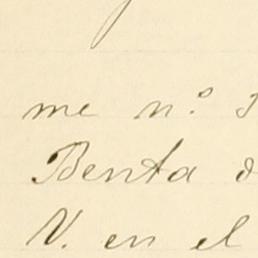 me n.º
Benta
V. en el